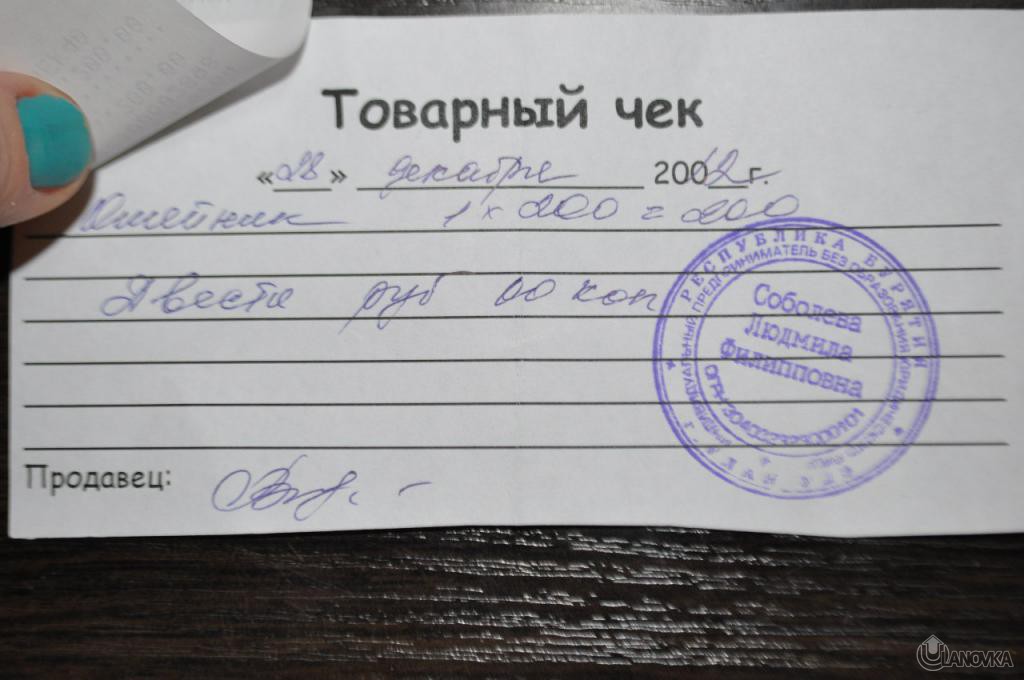 Товарный чек
«28» декабря 20012г.
Ошейник 1 x 200 = 200
Двести руб 00 коп
РЕСПУБЛИКА БУРЯТИЯ
ИНДИВИДУАЛЬНЫЙ ПРЕДПРИНИМАТЕЛЬ БЕЗ ОБРАЗОВАНИЯ ЮРИДИЧЕСКОГО
Соболева
Людмила
Филипповна
ОГРН
Г. УЛАН-УДЭ
Продавец:
ULANOVKA